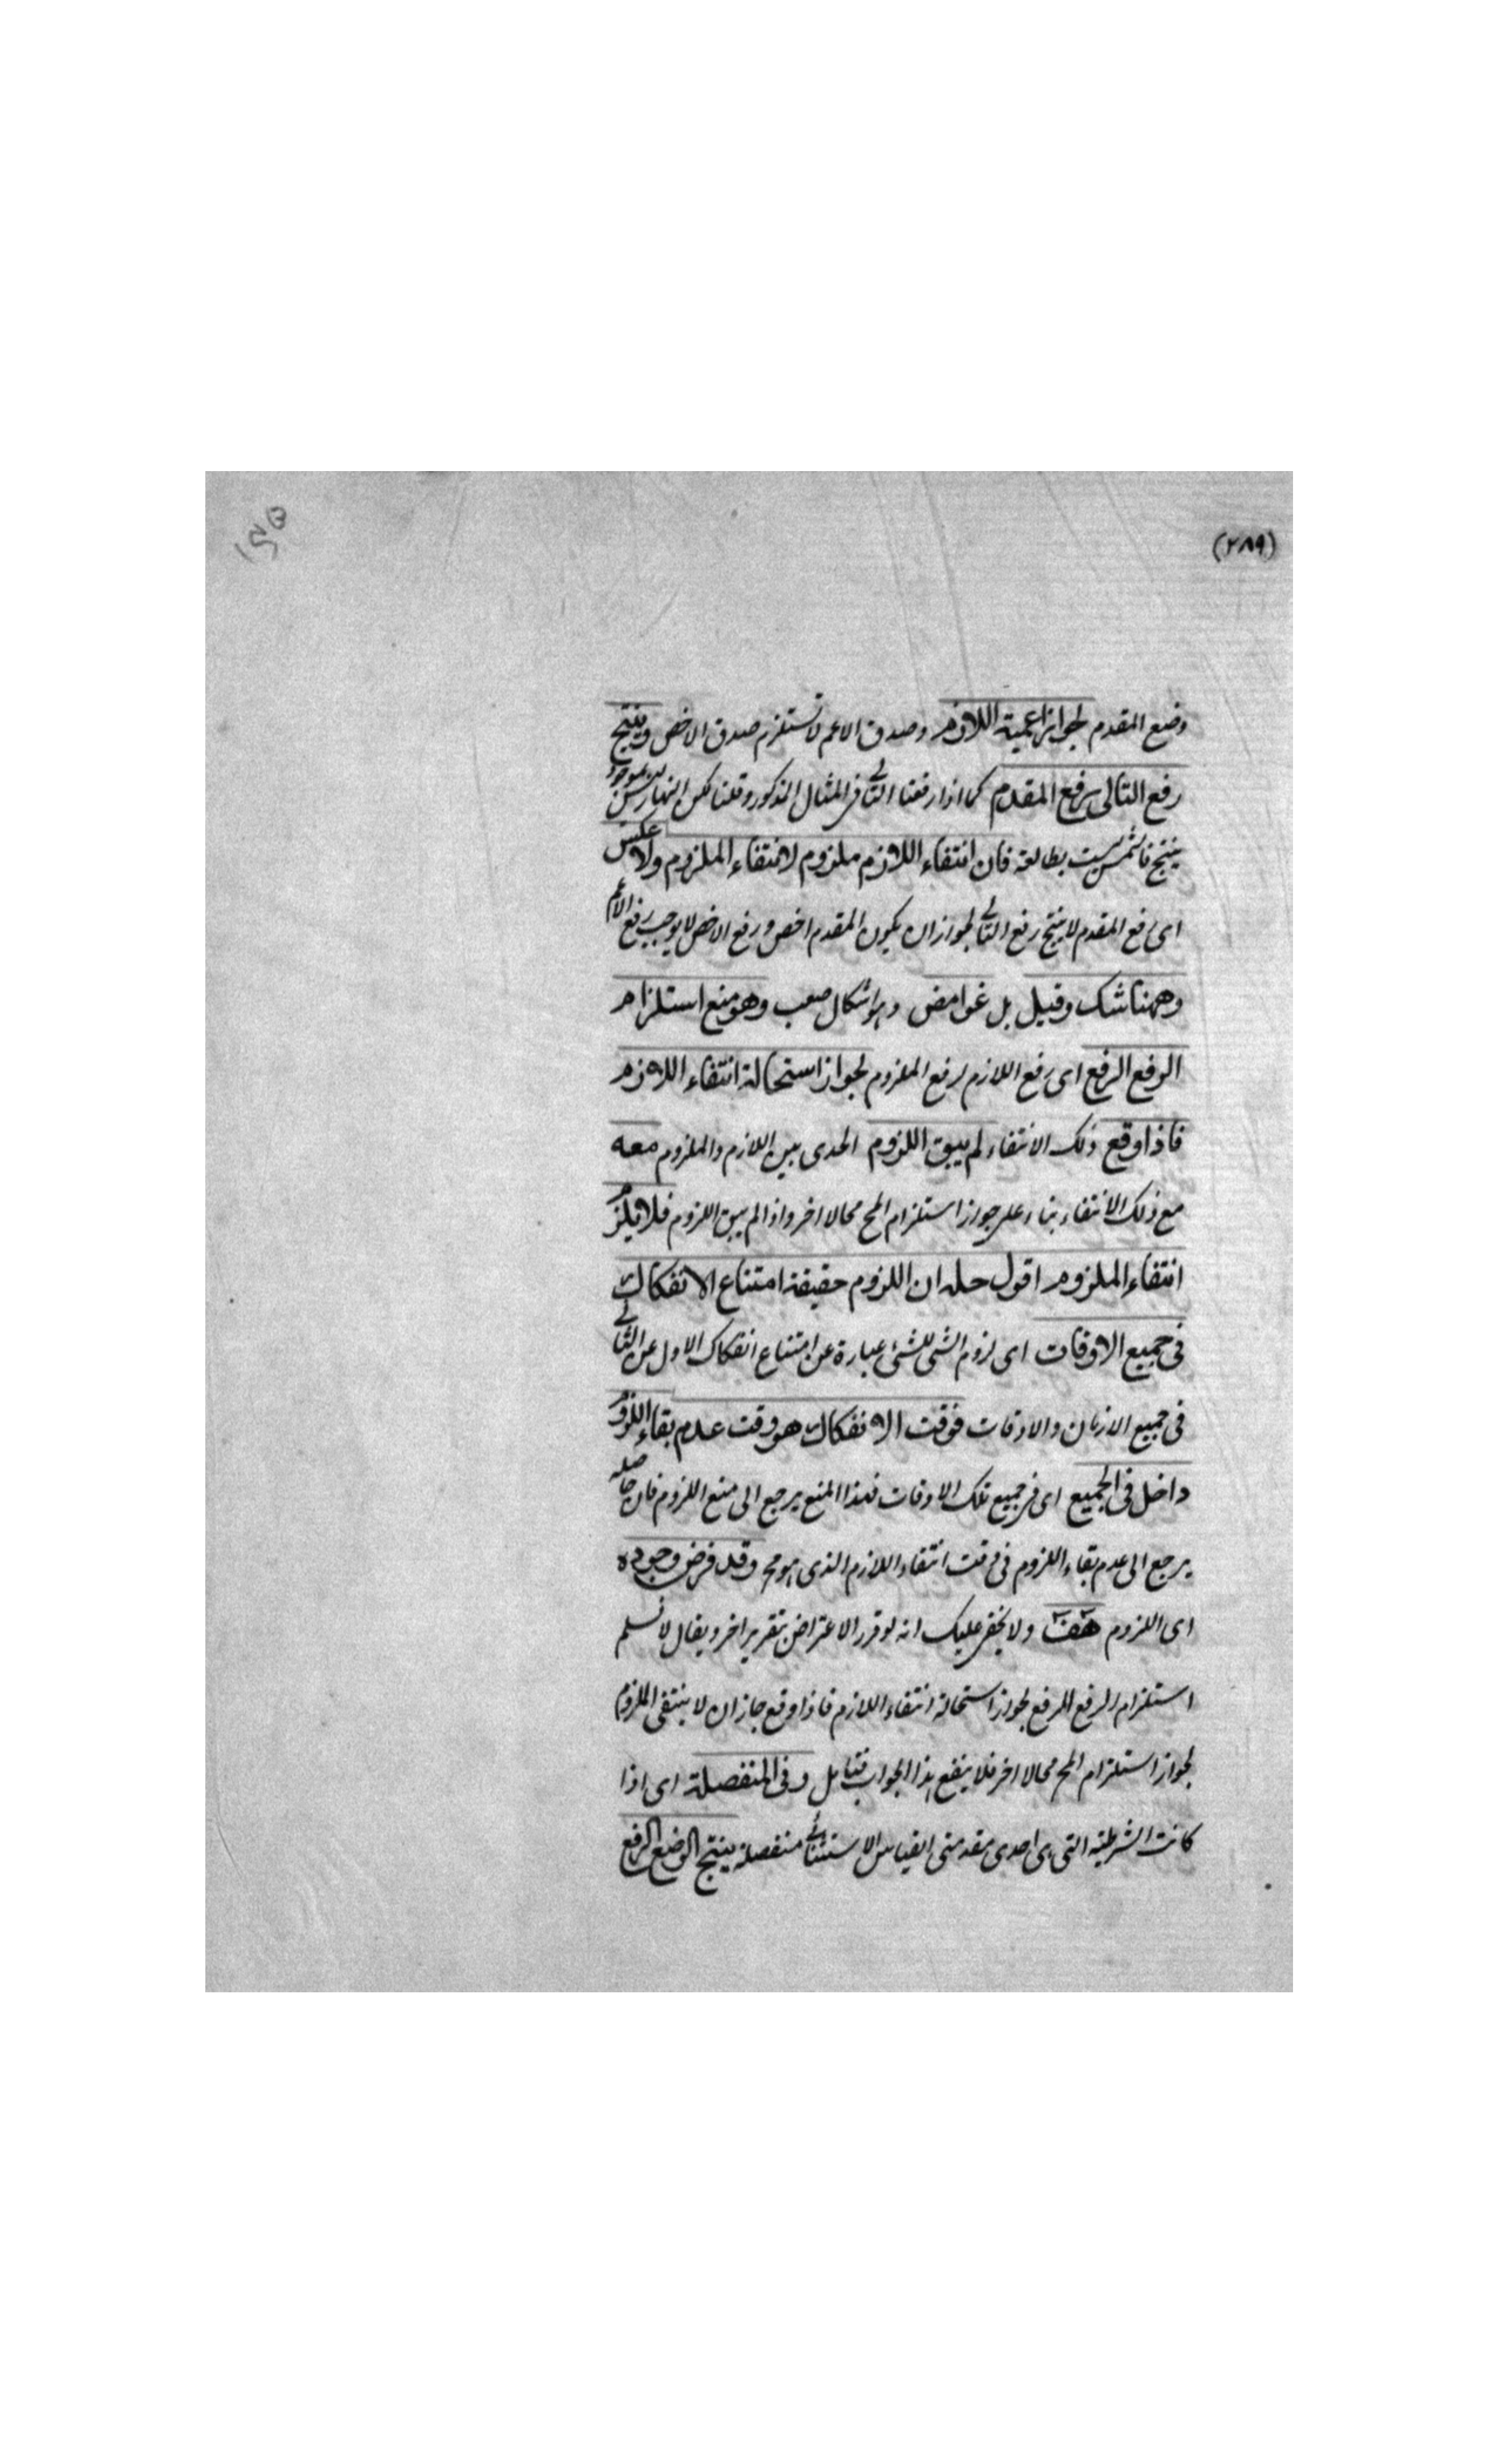 (٢٨٩)
وضع المقدم لجواز اعمية اللازم وصدق الاعم لا يستلزم صدق الاخص وينتج
رفع التالى رفع المقدم كما اذا رفعنا التالى فى المثال المذكور وقلنا لكن النهار ليس بموجود
ينتج فالشمس ليست بطالعة فان انتفاء اللازم ملزوم لانتفاء الملزوم ولا عكس
اى رفع المقدم لا ينتج رفع التالى لجواز ان يكون المقدم اخص ورفع الاخص لا يوجب رفع الاعم
وههنا شك وقيل بل غوامض وهو اشكال صعب وهو منع استلزام
الرفع الرفع اى رفع اللازم لرفع الملزوم لجواز استحالة انتفاء اللازم
فاذا وقع ذلك الانتفاء لم يبق اللزوم الذى بين اللازم والملزوم معه
مع ذلك الانتفاء بناء على جواز استلزام المح محالا اخر واذا لم يبق اللزوم فلا يلزم
انتفاء الملزوم اقول حله ان اللزوم حقيقة امتناع الانفكاك
فى جميع الاوقات اى لزوم الشى للشئ عبارة عن امتناع انفكاك الاول عن الثانى
فى جميع الازمان والاوقات فوقت الانفكاك هو وقت عدم بقاء اللزوم
داخل فى الجميع اى فى جميع تلك الاوقات فهذا المنع يرجع الى منع اللزوم فان حاصله
يرجع الى عدم بقاء اللزوم فى وقت انتفاء اللازم الذى هو مح وقد فرض وجوده
اى اللزوم هف ولا يخفى عليك انه لو قرر الاعتراض بتقرير اخر ويقال لا نسلم
استلزام الرفع للرفع لجواز استحالة انتفاء اللازم فاذا وقع جاز ان لا ينتفى الملزوم
لجواز استلزام المح محالا اخر فلا ينفع هذا الجواب فتامل وفى المنفصلة اى اذا
كانت الشرطية التى هى احدى مقدمتى القياس الاستثنائى منفصلة ينتج الوضع الرفع